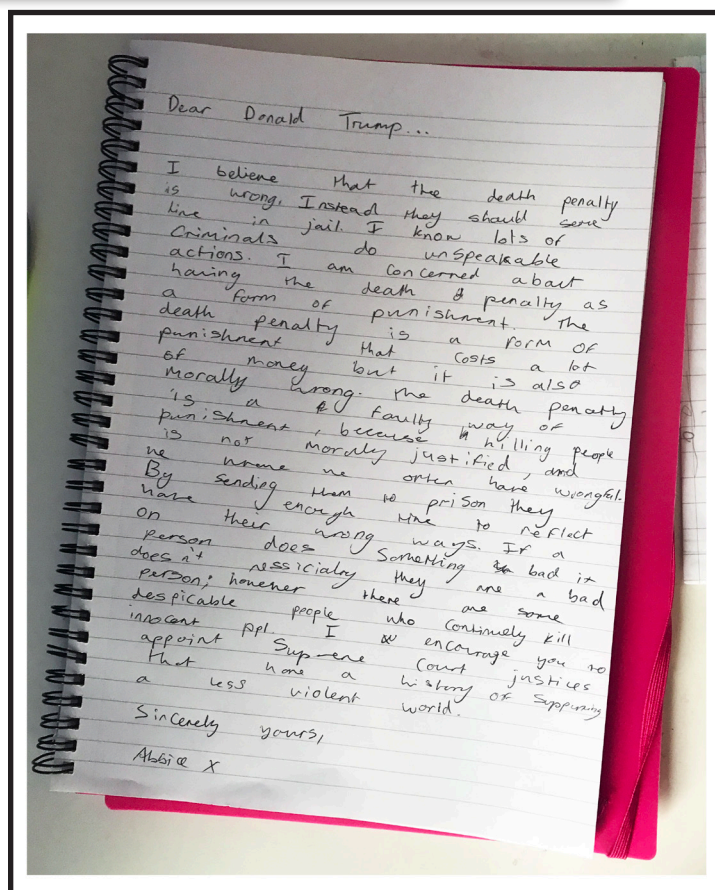 Dear Donald Trump...
I believe that the death penalty
is wrong. Instead they should serve
time in jail. I know lots of
Criminals do unspeakable
actions. I am concerned about
having the death penalty as
a form of punishment. The
death penalty is a form of
punishment that costs a lot
of money but it is also
morally wrong. The death penalty
is a faulty way of
punishment, because killing people
is not morally justified, and
we we often have wrongful-
By sending them to prison they
have enough time to reflect
on their wrong ways. If a
person does something bad it
doesn't nessicialry they are a bad
person; however there are some
despicable people who continuely kill
innocent ppl. I encourage you to
appoint Supreme Court justices
that have a history of supporting
a less violent world.
Sincerely yours,
Abbie X